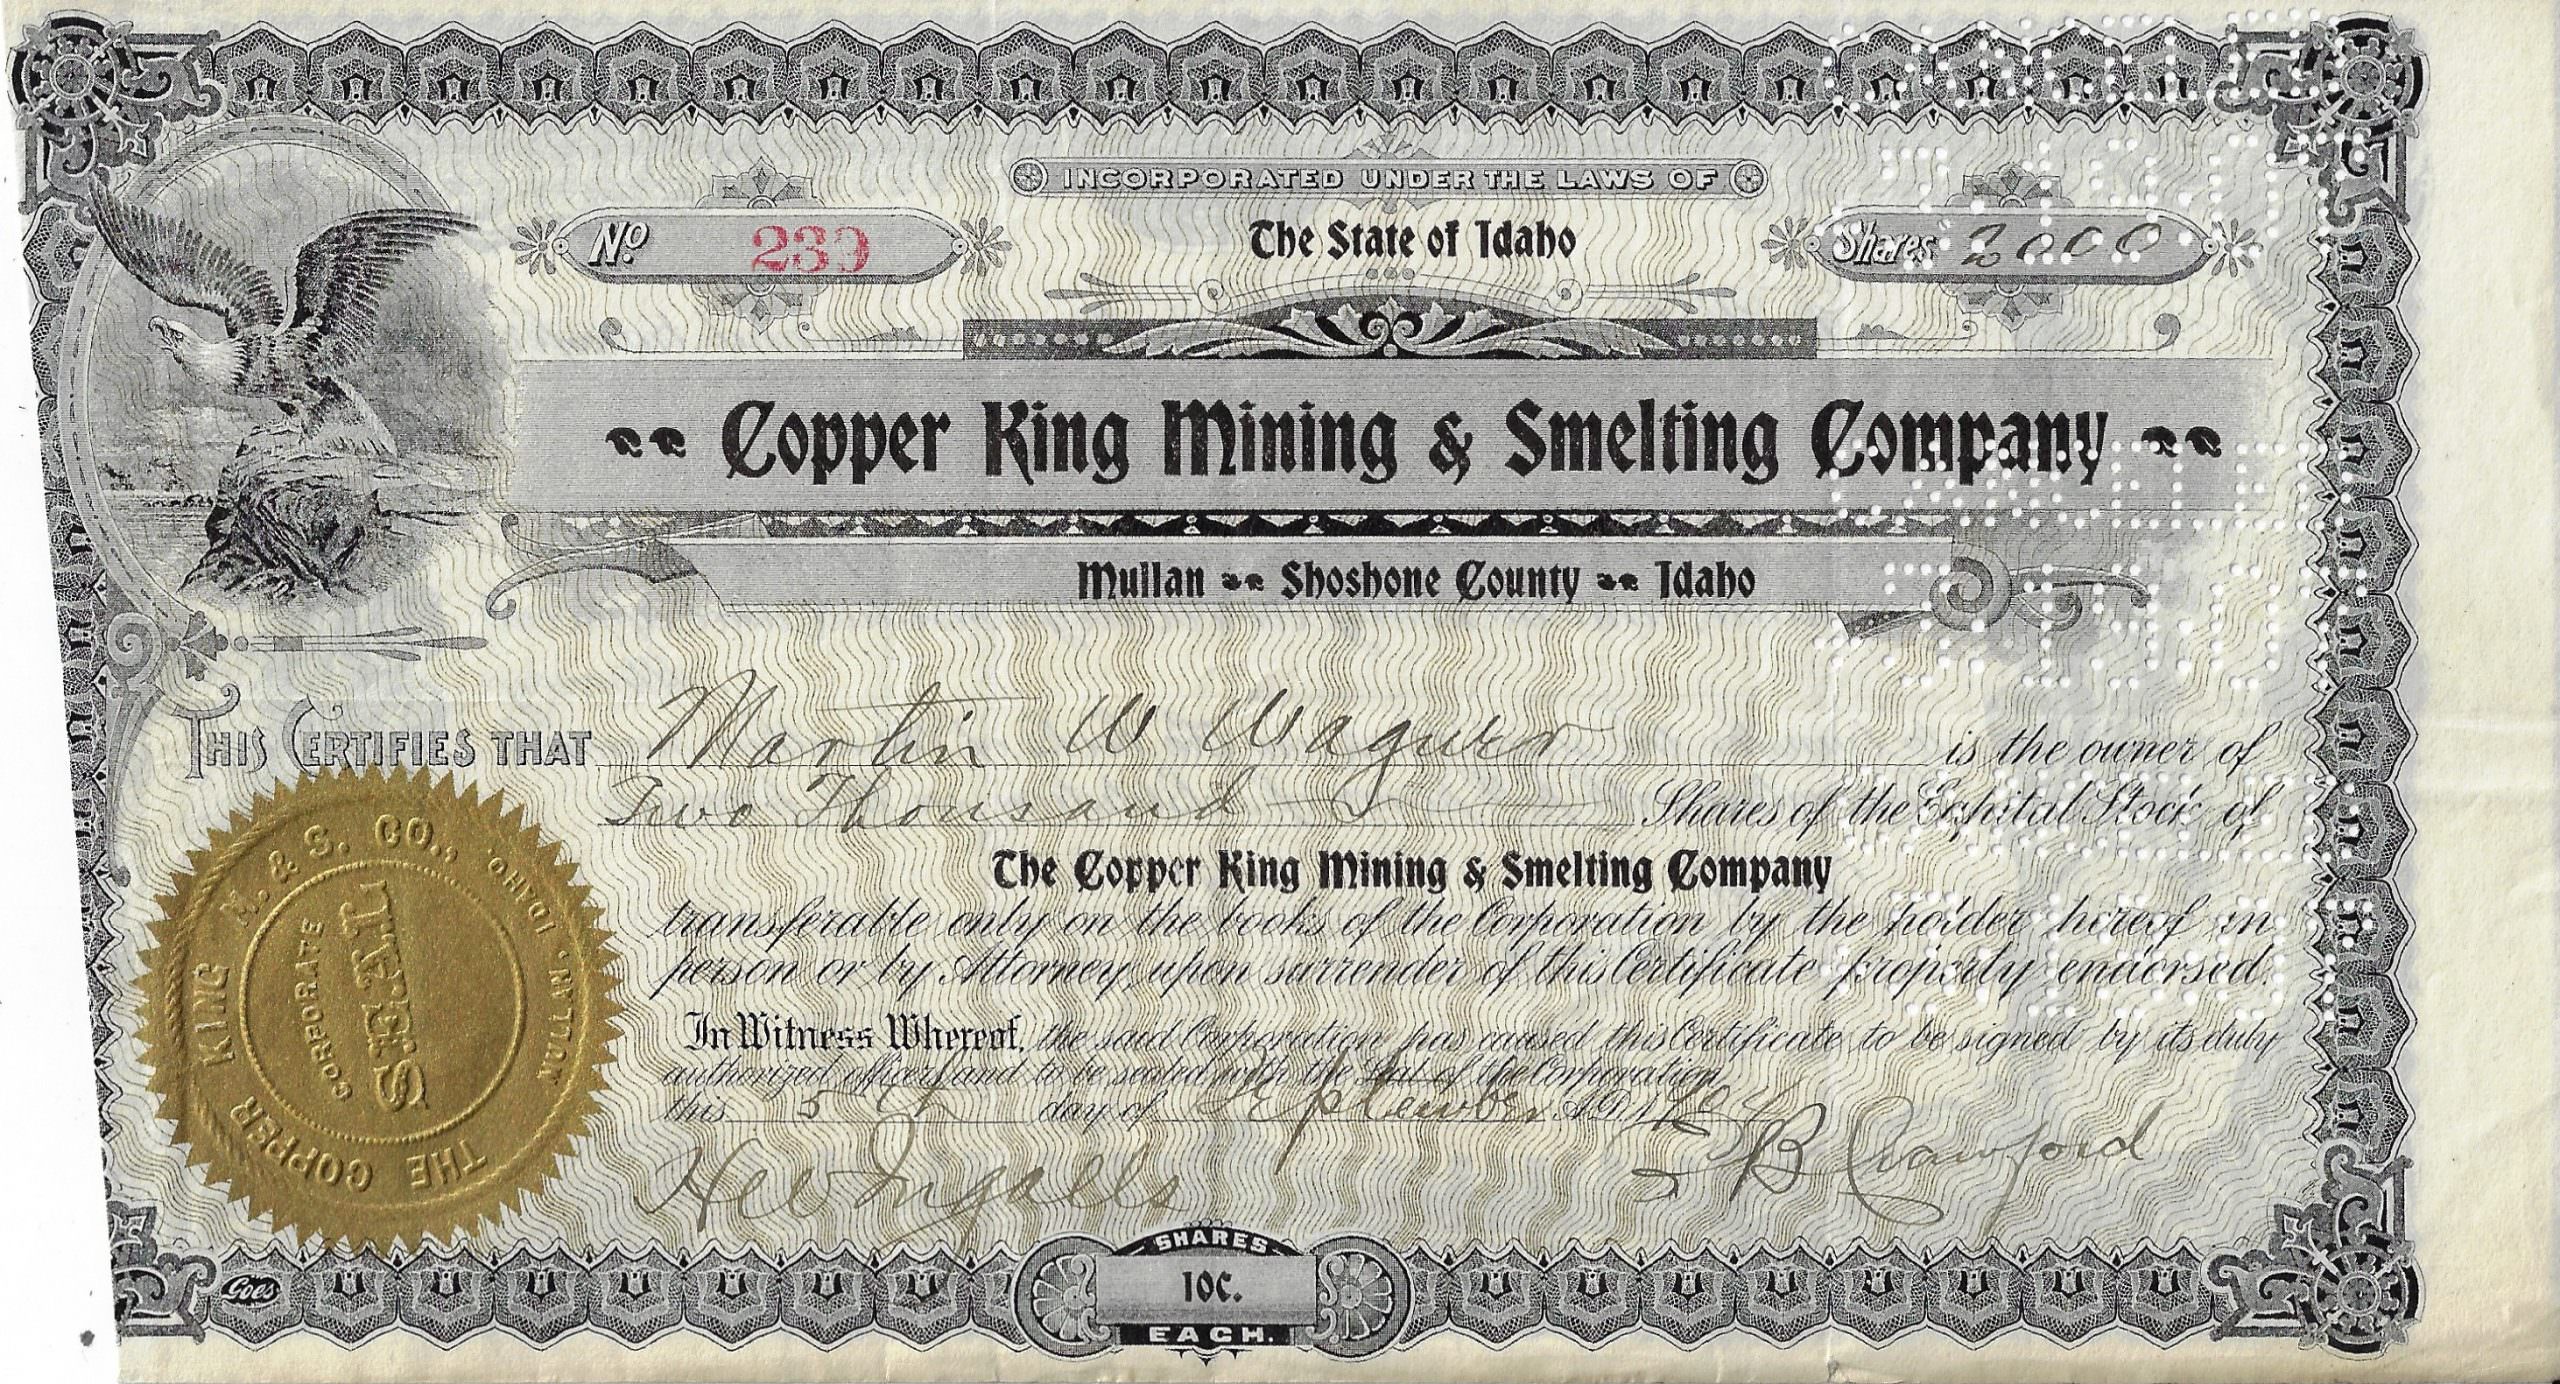 INCORPORATED UNDER THE LAWS OF
No. 239
The State of Idaho
Shares 2000
Copper King Mining & Smelting Company
Mullan Shoshone County Idaho
THIS CERTIFIES THAT Martin W Wagner is the owner of
Two Thousand Shares of the Capital Stock of
The Copper King Mining & Smelting Company
transferable only on the books of the Corporation by the holder hereof in
person or by Attorney, upon surrender of this Certificate properly endorsed.
In Witness Whereof, the said Corporation has caused this Certificate to be signed by its duly
authorized officers and to be sealed with the Seal of the Corporation
this 5th day of September A.D. 190
Ingalls
B Crawford
THE COPPER KING M. & S. CO., MULLAN, IDAHO.
CORPORATE
SEAL
Goes
SHARES
10C.
EACH.